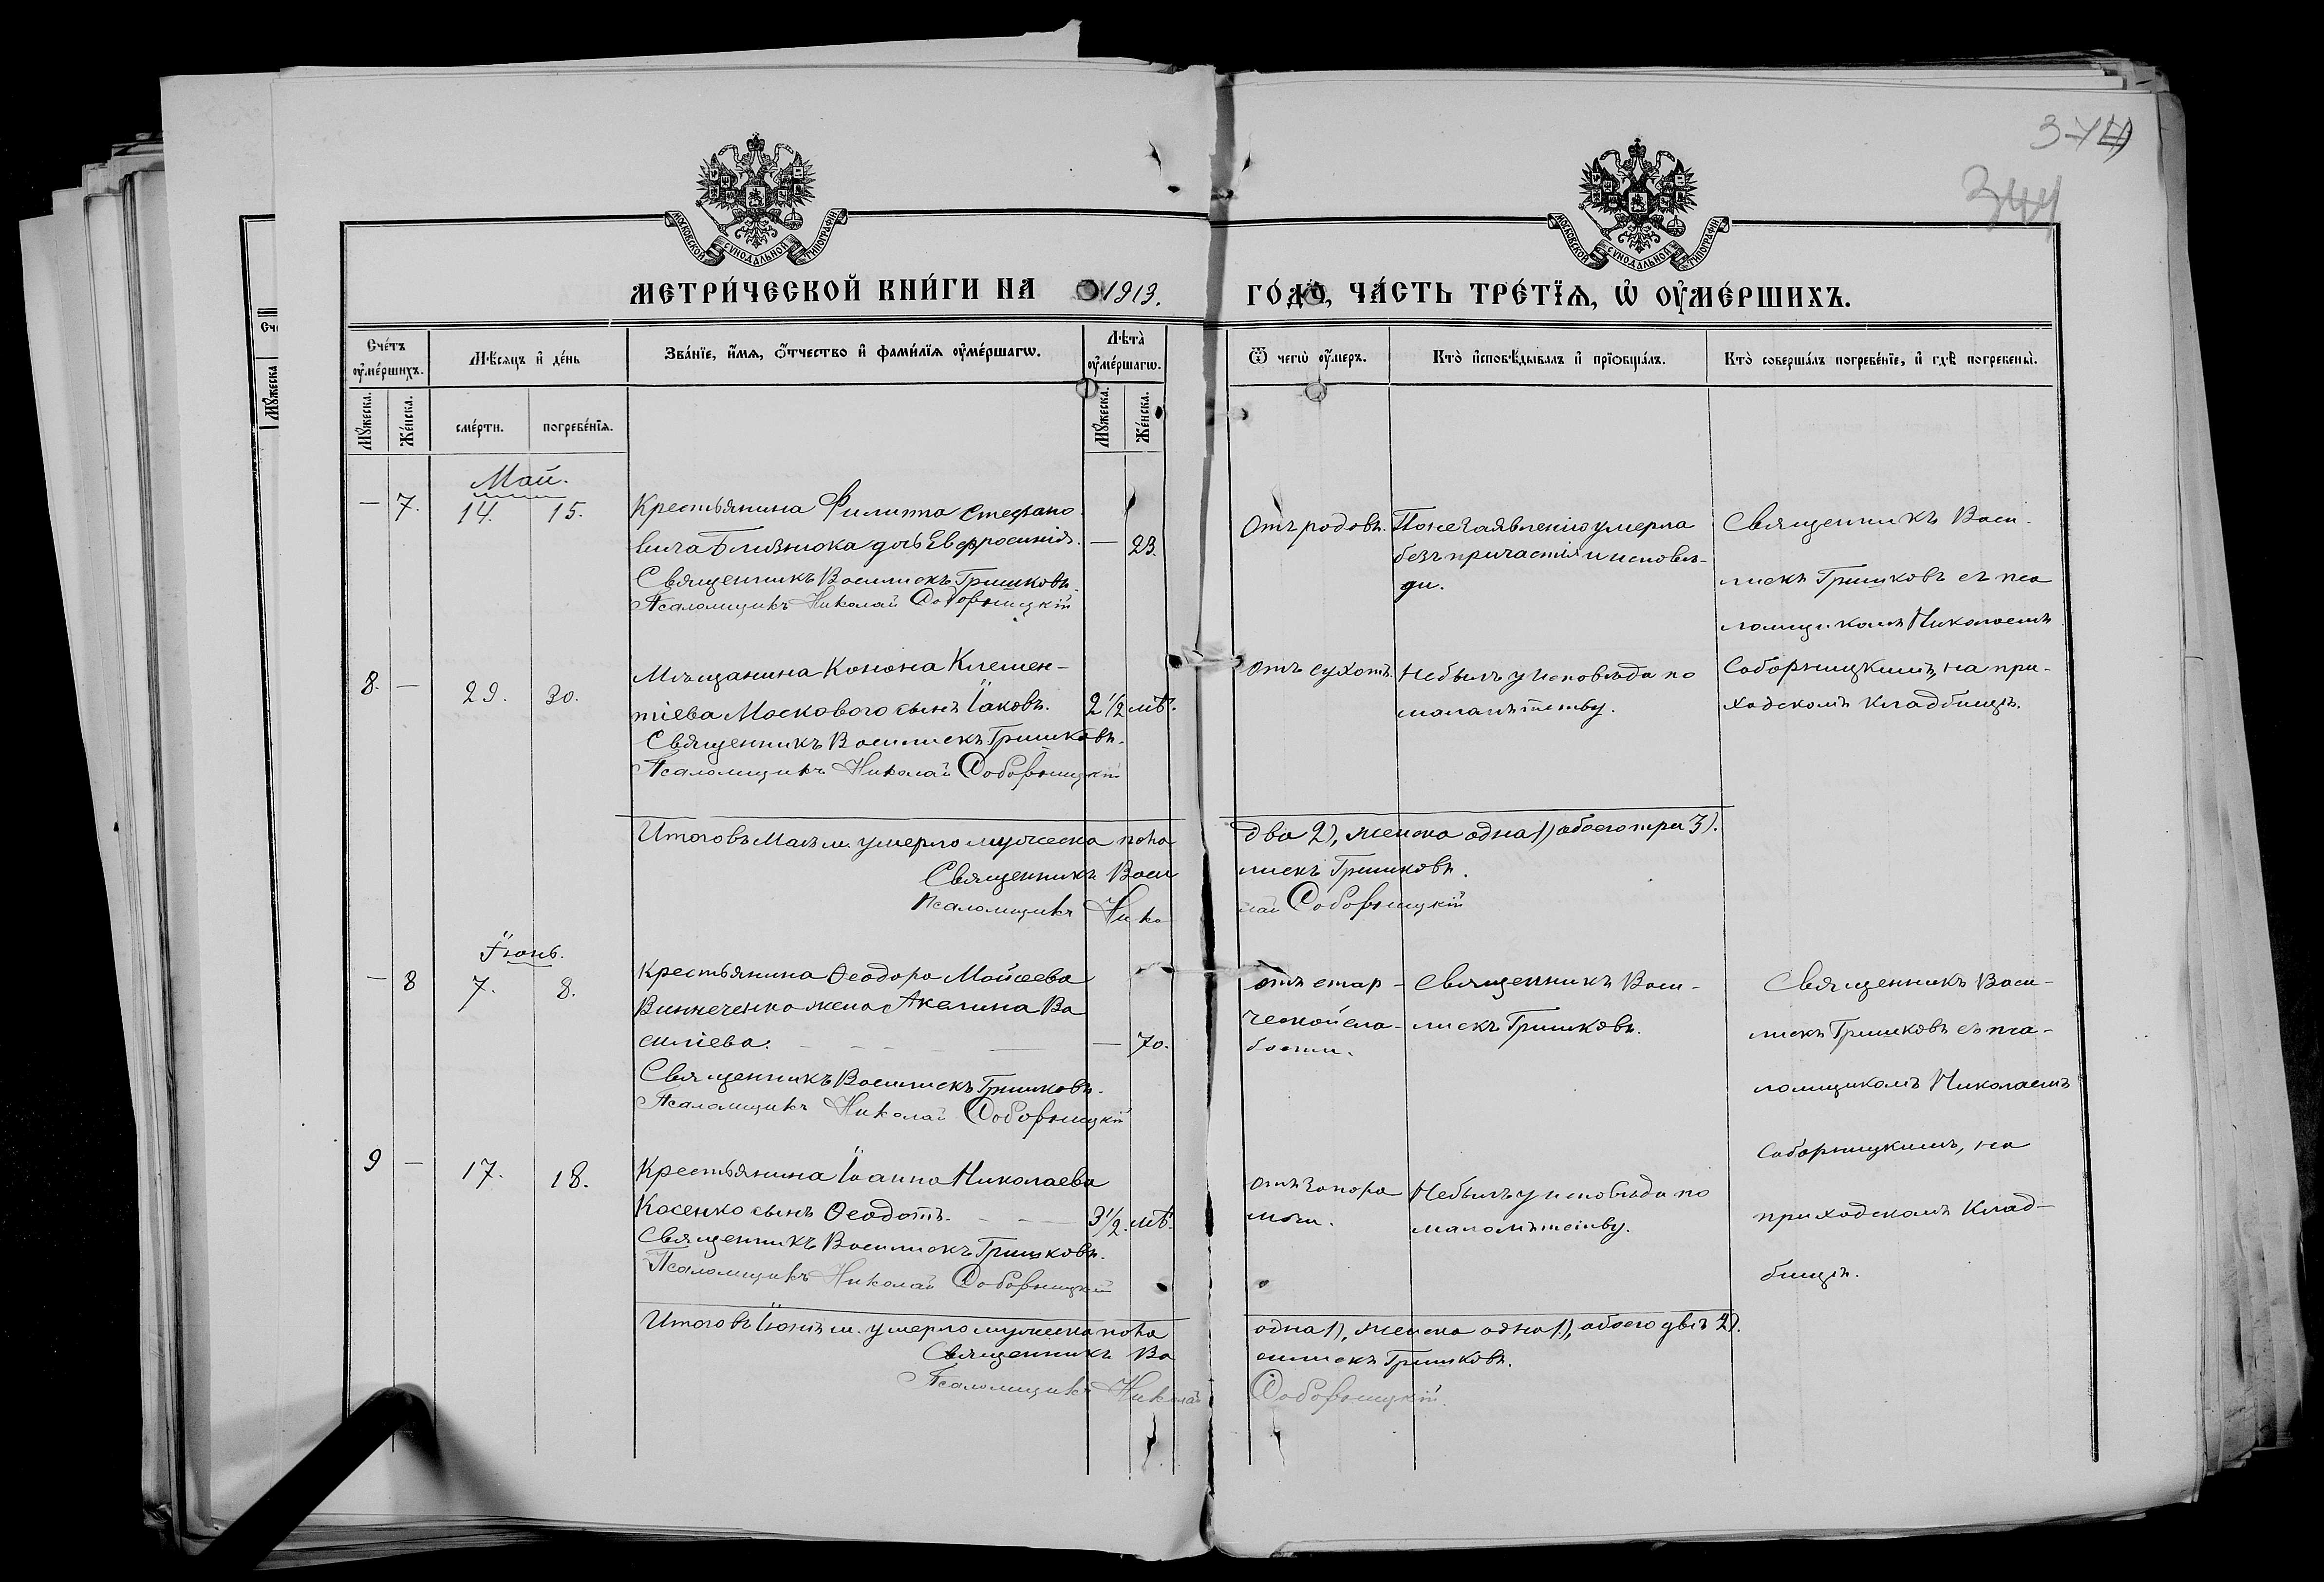 374
344
МОСКОВСКОЙ СѴНОДАЛЬНОЙ ТИПОГРАФІИ
МОСКОВСКОЙ СѴНОДАЛЬНОЙ ТИПОГРАФІИ
МЕТРИ́ЧЕСКОЙ КНИ́ГИ НА 1913.
ГО́ДЪ, ЧА́СТЬ ТРЕ́ТЇѦ, Ѡ҆ ОУ҆МЕ́РШИХЪ.
Сче́тъ оу҆ме́ршихъ.
Мꙋ́жеска.
Же́нска.
Мѣ́сяцъ и҆ де́нь
сме́рти.
погребе́нїѧ.
Зва́нїе, и҆́мѧ, ѻ҆́тчество и҆ фами́лїѧ оу҆ме́ршагѡ.
Лѣ̀та̀ оу҆ме́ршагѡ.
Мꙋ́жеска.
Же́нска.
Ѿ чегѡ̀ оу҆́меръ.
Кто̀ и҆сповѣ́дывалъ и҆ прїѻбща́лъ.
Кто̀ соверша́лъ погребе́нїе, и҆ гдѣ̀ погребены̀.
Май.
— 7. 14. 15.
Крестьянина Филиппа Стефано
вича Близнюка дочь Евфросинія. — 23.
Священникъ Василискъ Гришковъ.
Псаломщикъ Николай Соборницкій
Отъ родовъ.
По нечаявленію умерла
безъ причастія и исповѣ-
ди.
Священникъ Васи-
лискъ Гришковъ съ пса
ломщикомъ Николаемъ
Соборницкимъ, на при-
ходскомъ кладбищѣ.
8. — 29. 30.
Мѣщанина Конона Клемен-
тіева Москового сынъ Іаковъ. 2 1/2 лѣт.
Священникъ Василискъ Гришковъ.
Псаломщикъ Николай Соборницкій
Отъ сухотъ.
Небылъ у исповѣди по
малалѣтству.
Итого въ Маѣ м. умерло мужеска пола два 2), женска одна 1) обоего три 3).
Священникъ Василискъ Гришковъ.
Псаломщикъ Николай Соборницкій
Іюнь.
— 8 7. 8.
Крестьянина Ѳеодора Мойсеева
Винниченко жена Акелина Ва
силіева. — 70.
Священникъ Василискъ Гришковъ.
Псаломщикъ Николай Соборницкій
отъ стар-
ческой сла-
бости.
Священникъ Васи-
лискъ Гришковъ.
Священникъ Васи-
лискъ Гришковъ съ пса-
ломщикомъ Николаемъ
Соборницкимъ, на
приходскомъ Клад-
бищѣ.
9 — 17. 18.
Крестьянина Іоанна Николаева
Косенко сынъ Ѳеодотъ. 3 1/2. лѣт.
Священникъ Василискъ Гришковъ.
Псаломщикъ Николай Соборницкій
отъ запора
мочи.
Небылъ у исповѣди по
малолѣтству.
Итого въ Іюнѣ м. умерло мужеска пола одна 1), женска одна 1), обоего двѣ 2).
Священникъ Василискъ Гришковъ.
Псаломщикъ Николай Соборницкій.
Сче
Мꙋ́жеска